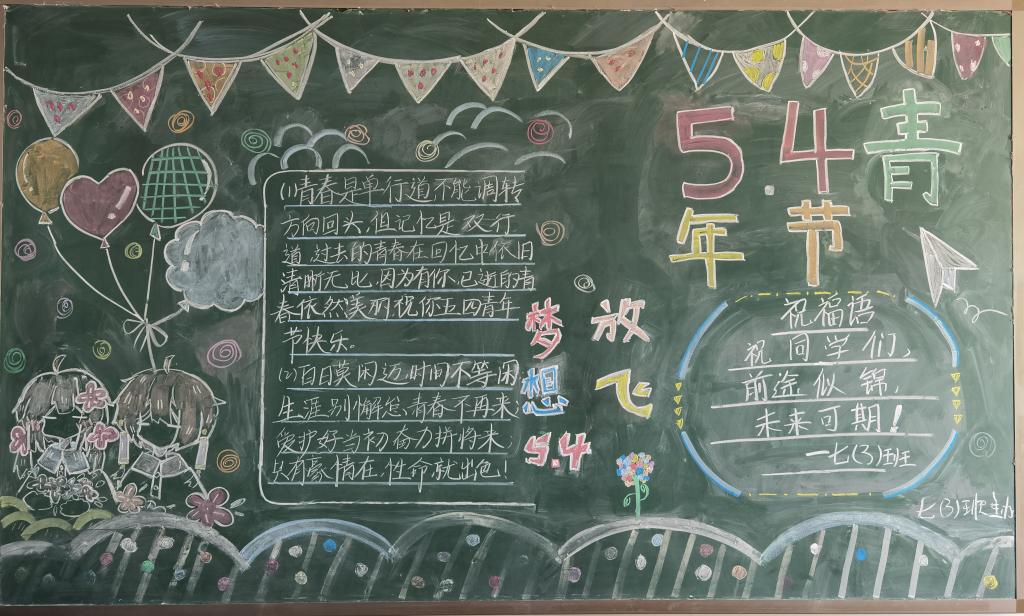 5.4青
年节
(1)青春是单行道不能调转
方向回头,但记忆是双行
道,过去的青春在回忆中依旧
清晰无比,因为有你,已逝的青
春依然美丽,祝你五四青年
节快乐。
(2)百日莫闲迈,时间不等闲
生涯别懈怠,青春不再来;
爱护好当初奋力拼将来,
只有豪情在,性命就出色!
放飞
梦想
5.4
祝福语
祝同学们,
前途似锦,
未来可期!
—七(3)班
七(3)班主办